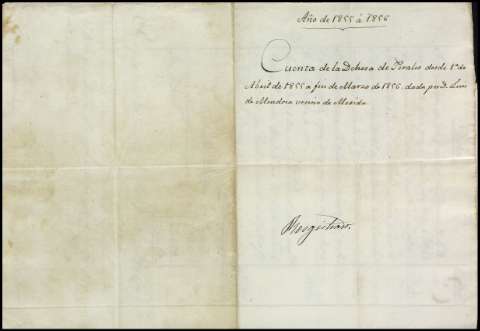 Año de 1855 á 1856
Cuenta de la Dehesa de Perales desde 1º de
Abril de 1855 a fin de Marzo de 1856, dada por D. Luis
de Mendoza vecino de Merida